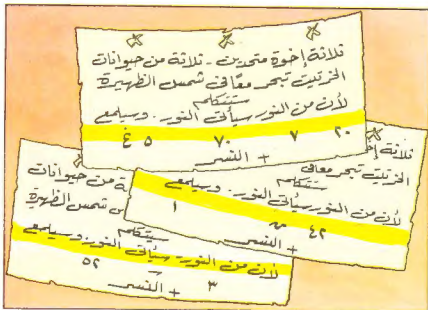 ثلاثة إخوة متحدين - ثلاثة من حيوانات
الخرتيت تبحر معًا في شمس الظهيرة
ستتكلم
لأن من النور سيأتي النور. وسيلمع
٢٠ ٧ ٧٠ ٥ غ
+ النسر
ثلاثة
الخرتيت تبحر معًا في
ستتكلم
لأن من النور سيأتي النور. وسيلمع
٤٢ ١
+ النسر
من حيوانات
شمس الظهيرة
ستتكلم
لأن من النور سيأتي النور. وسيلمع
٥٢
٣ + النسر